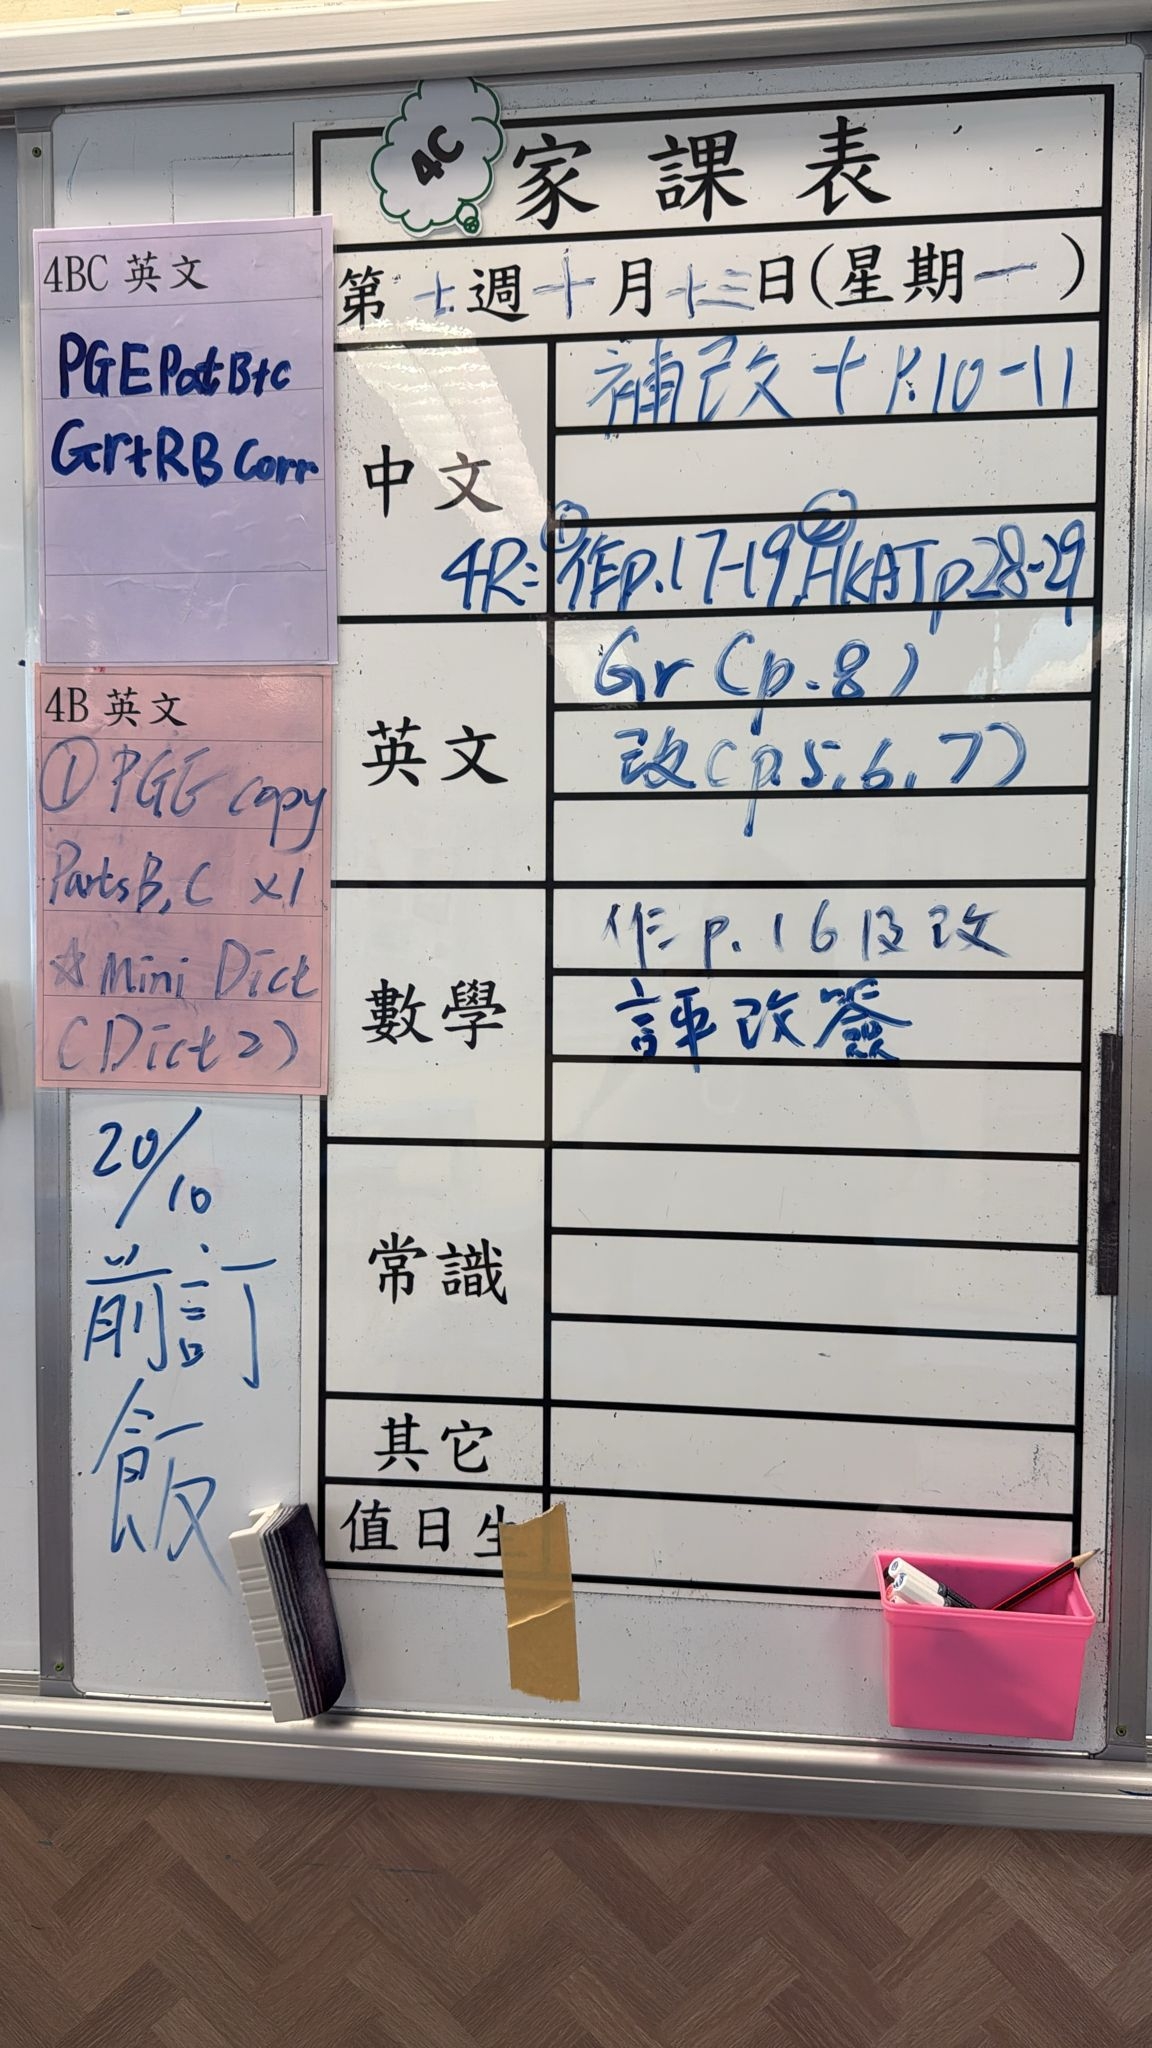 4C
家課表
第七週十月十三日(星期一)
4BC 英文
PGE Part B+C
Gr+RB Corr
4B 英文
① PGE copy
Parts B, C x1
☆ Mini Dict
(Dict 2)
20/10
前訂
飯
中文
補改+P.10-11
4R: ①作p.17-19, ②HKAT p.28-29
英文
Gr (p.8)
改(p.5,6,7)
數學
作p.16及改
評改簽
常識
其它
值日生